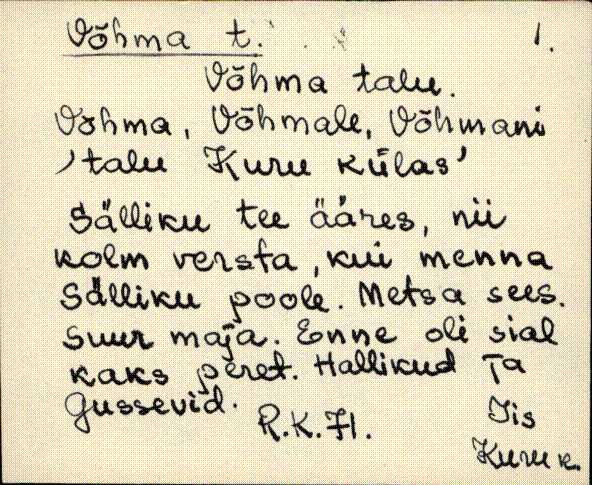 Võhma t. 1.
Võhma talu.
Võhma, Võhmale, Võhmani
'talu Kuru külas'
Sälliku tee ääres, nii
kolm versta, kui menna
Sälliku poole. Metsa sees.
Suur maja. Enne oli sial
kaks peret. Hallikud ja
Gussevid.
R.K.71. Iis
Kuru k.